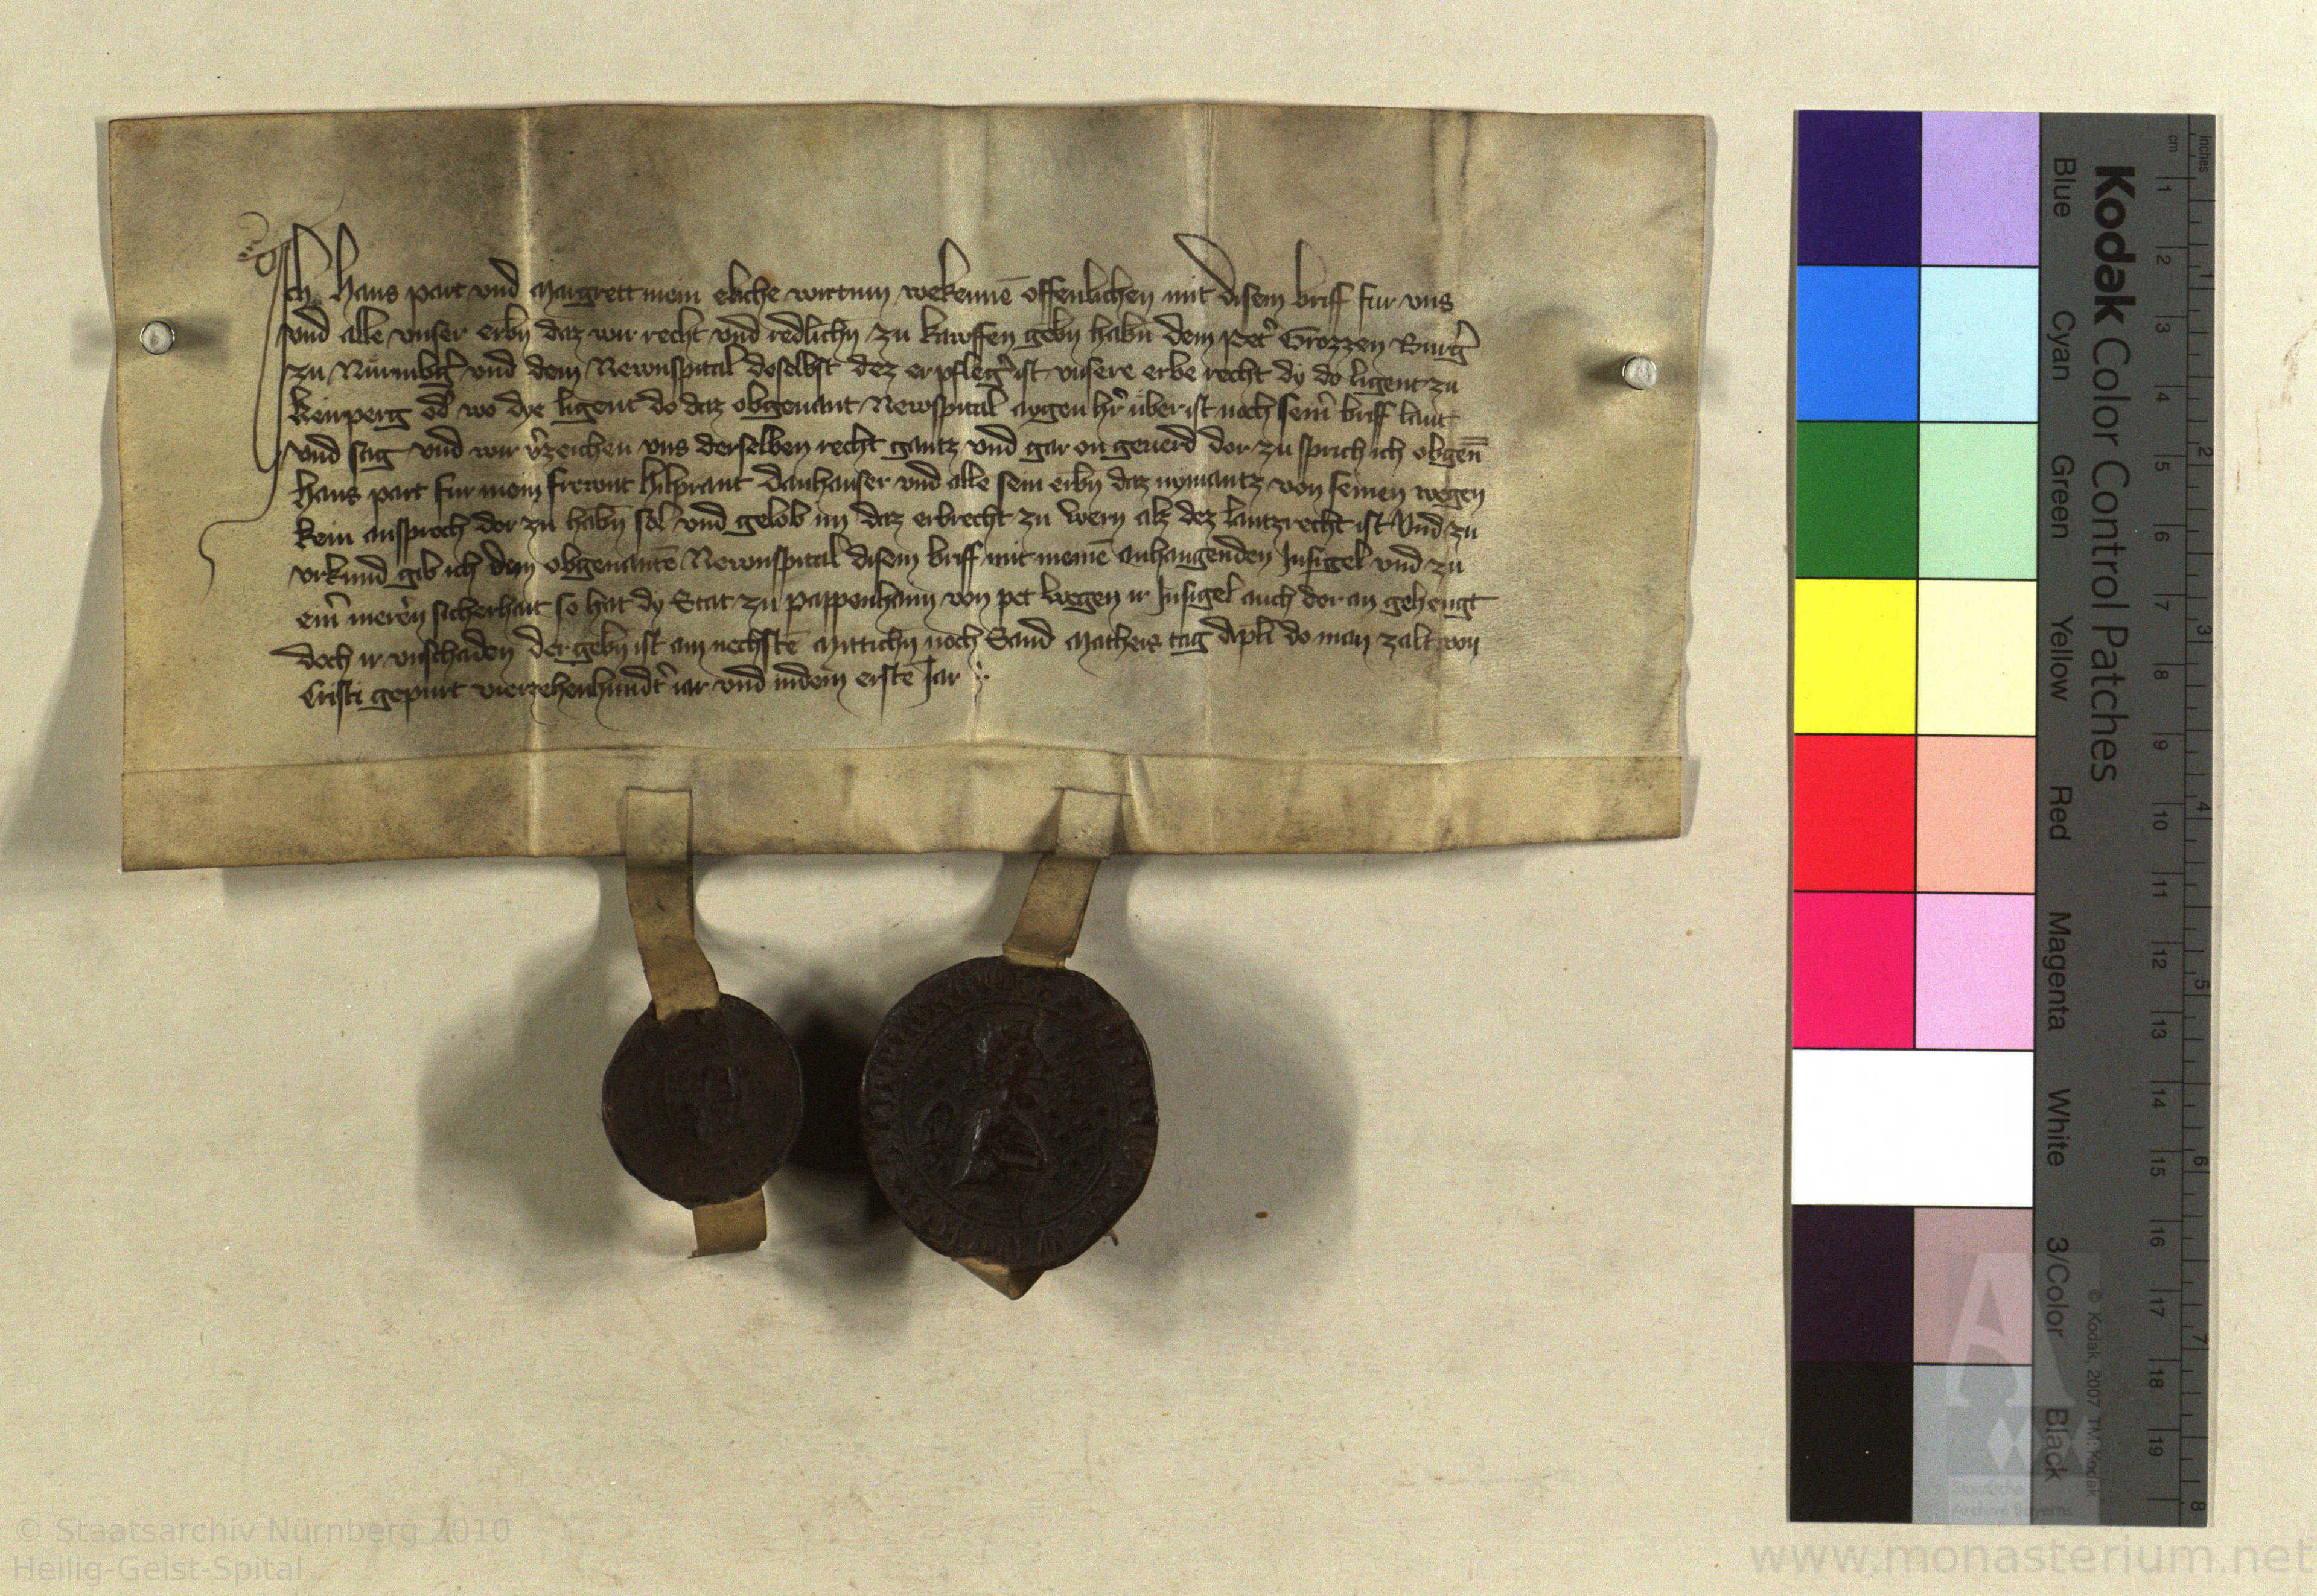 Ich Hans part vnd Margrett mein eliche wirtinn wekennē offenlichen mit disem briff fur vns
vnd alle vnser erbn̄ daz wir recht vnd redlichn̄ zu kawffen gebn̄ habn̄ dem Pet̉ Grozzen Burg̉
zu Nurmbg̉ vnd dem Newnspital doselbst dez er pfleg̉ ist vnsere erbe recht dy do ligent zu
Keinperg od̉ wo dye ligent do daz obgenant Newspital aygen hr̉ über ist noch seim̄ briff laut
vnd sag vnd wir v̉zeichen vns derselben recht gantz vnd gar on geuerd dor zu sprich ich obgen̄
Hans part fur mein frewnt hilprant Danhauser vnd alle sein erbn̄ daz nymantz von seinen wegen
kein ansproch dor zu habn̄ sol vnd gelob im daz erbrecht zu wern alz dez lantzrecht ist Vnd zu
vrkund gib ich dem obgenantē Newnspital disem briff mit meinē anhangenden Insigel vnd zu
eim̄ merern sicherhait so hat dy Stat zu pappenhaim von pet wegen ir Insigel auch dor an gehengt
doch ir vnschaden der gebn̄ ist am nechstē Mittichn̄ noch Sand Matheis tag apl̄i do man zalt von
Cristi gepurt vierzehenhundt̉ iar vnd indem erstē Jar
Kodak Color Control Patches
Blue Cyan Green Yellow Red Magenta White 3/Color Black
inches 1 2 3 4 5 6 7 8
cm 1 2 3 4 5 6 7 8 9 10 11 12 13 14 15 16 17 18 19
© Kodak, 2007 TM: Kodak
Staatliche
Archive Bayerns
© Staatsarchiv Nürnberg 2010
Heilig-Geist-Spital
www.monasterium.net